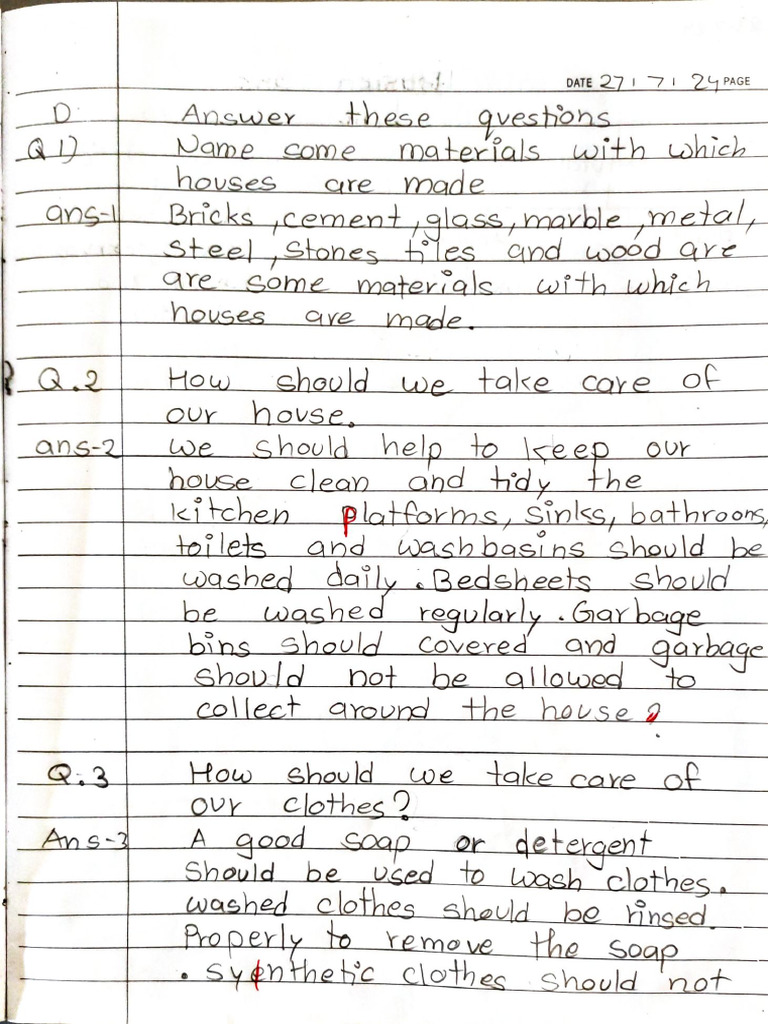 DATE 27 / 7 / 24 PAGE
D Answer these questions
Q 1) Name some materials with which
houses are made
ans-1 Bricks ,cement ,glass, marble, metal,
steel, stones tiles and wood are
are some materials with which
houses are made.
Q.2 How should we take care of
our house.
ans-2 We should help to keep our
house clean and tidy the
kitchen platforms, sinks, bathroons,
toilets and washbasins should be
washed daily. Bedsheets should
be washed regularly. Garbage
bins should covered and garbage
should not be allowed to
collect around the house?
Q.3 How should we take care of
our clothes?
Ans-3 A good soap or detergent
Should be used to wash clothes.
washed clothes should be rinsed.
Properly to remove the soap
. synthetic clothes should not